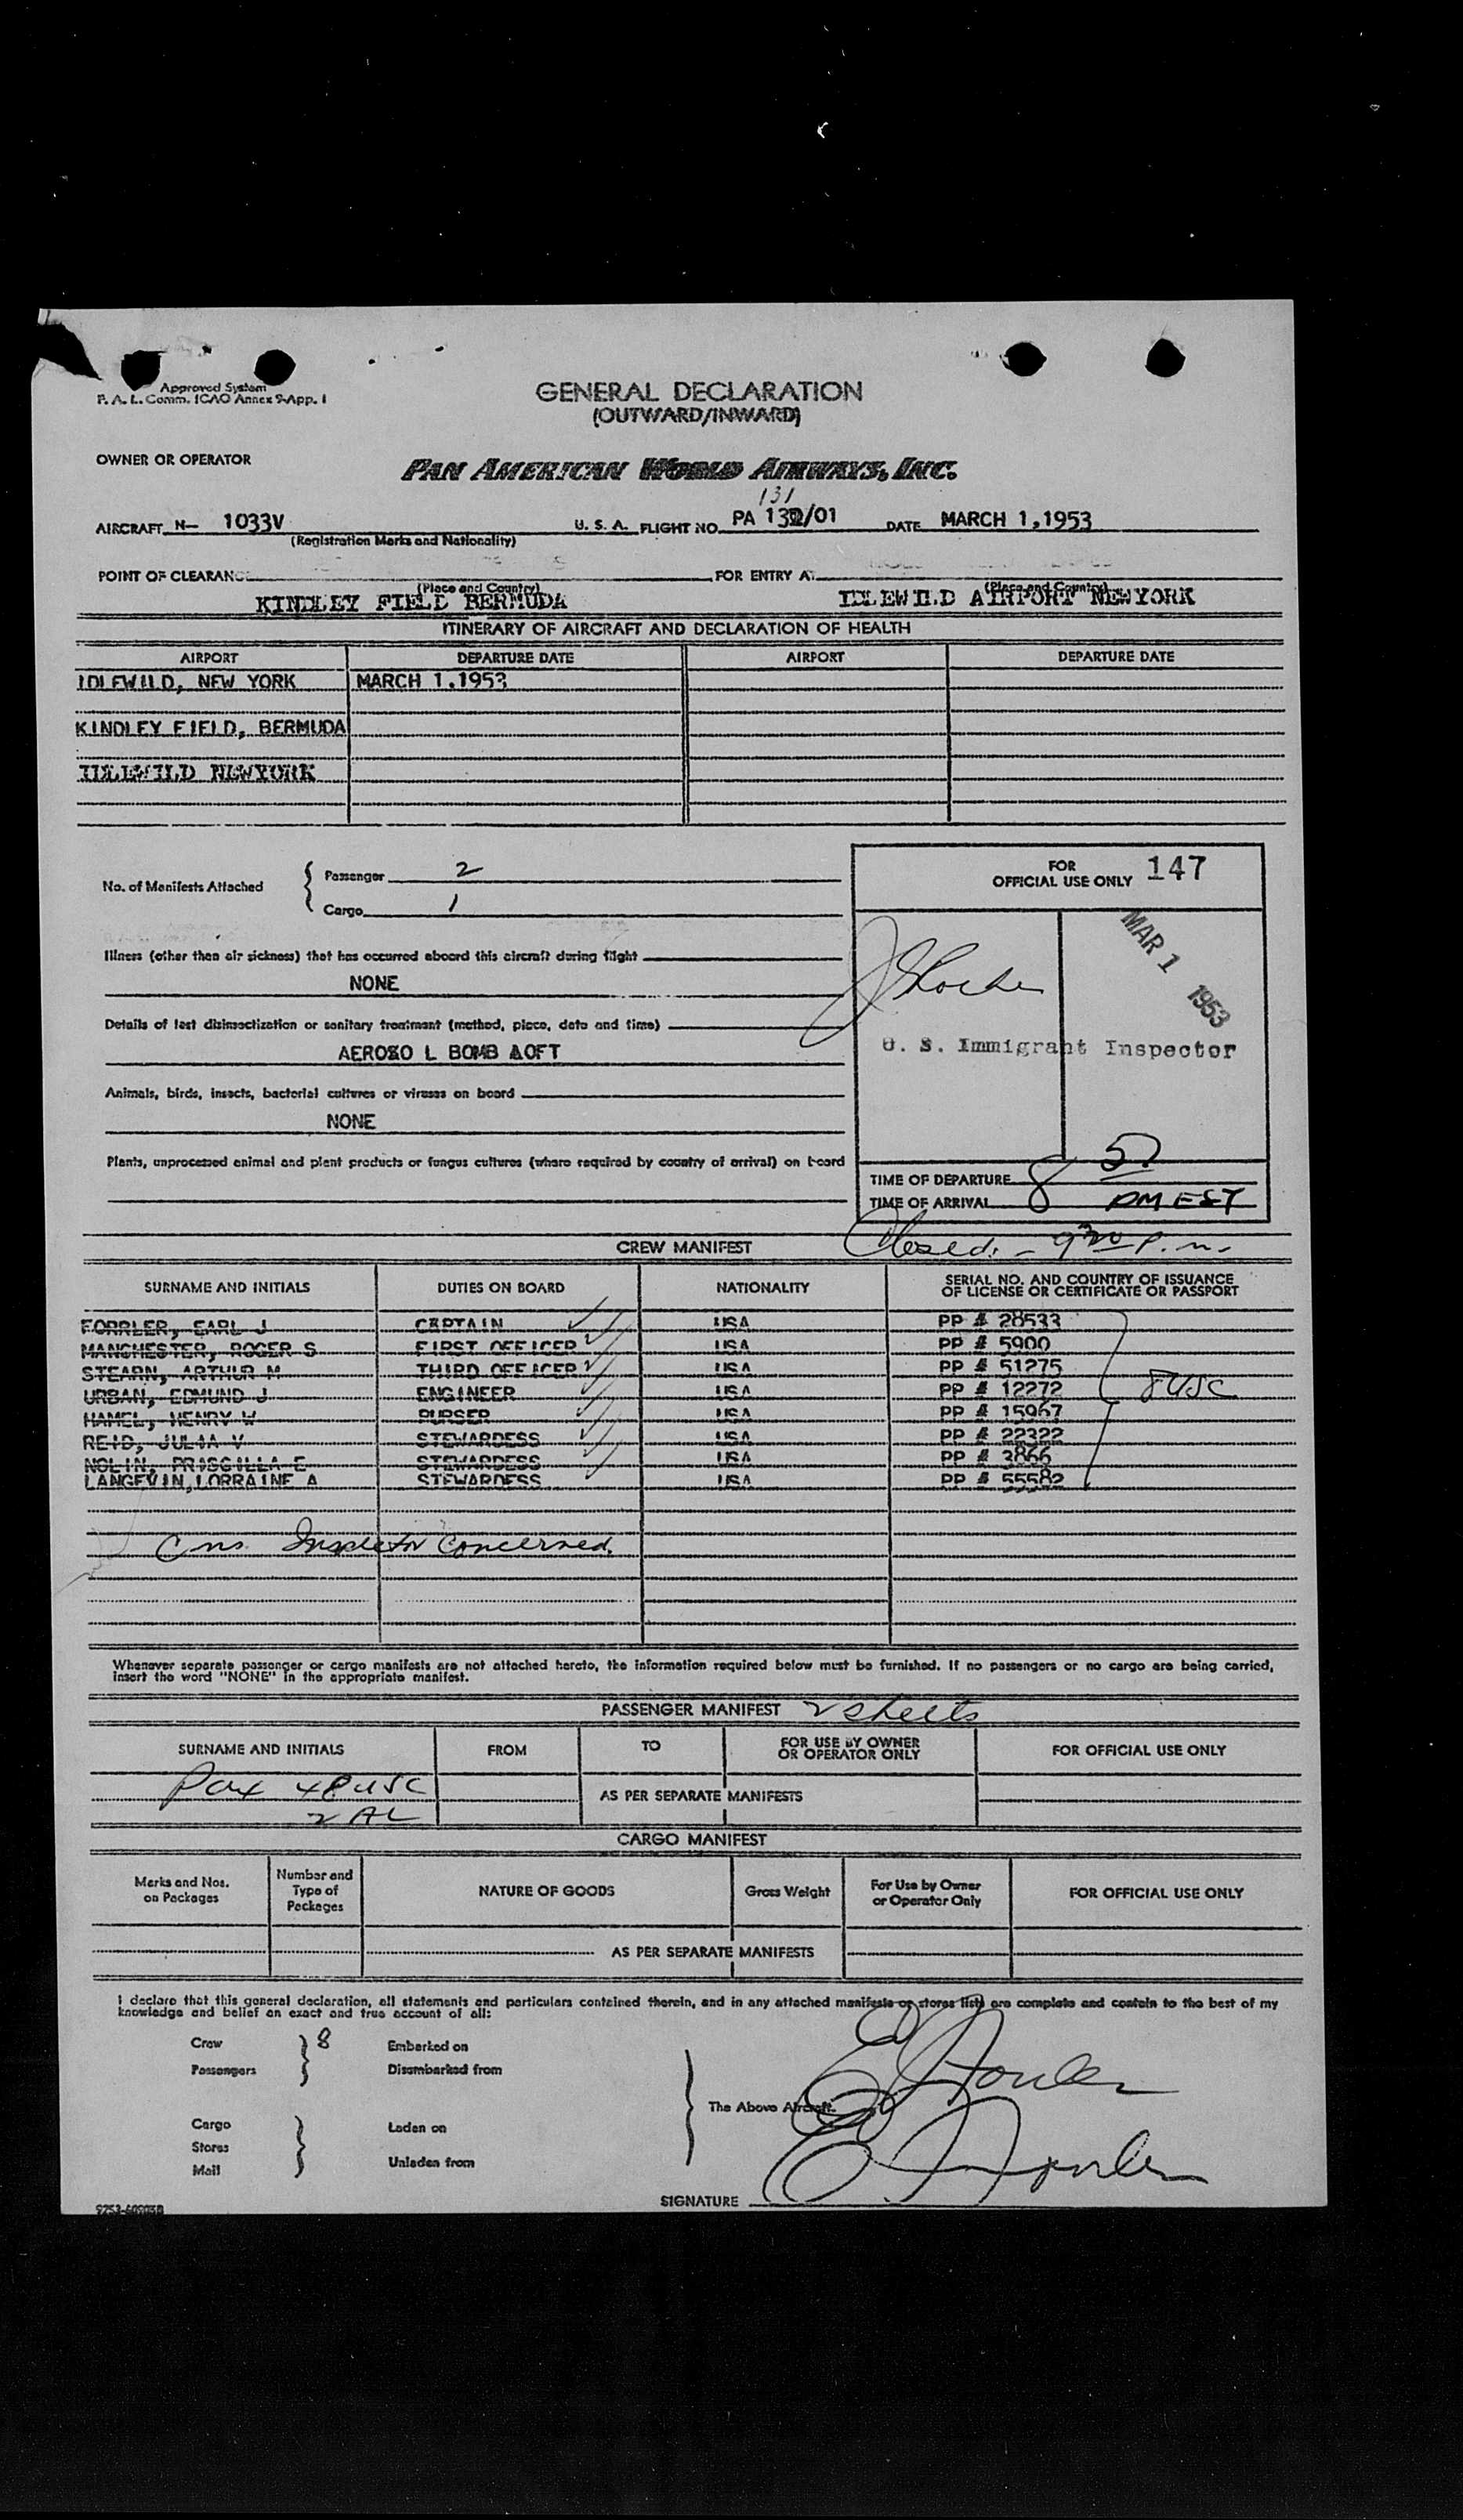 Approved System
F. A. L. Comm. ICAO Annex 9-App. 1
GENERAL DECLARATION
(OUTWARD/INWARD)
OWNER OR OPERATOR
PAN AMERICAN WORLD AIRWAYS, INC.
131
AIRCRAFT N- 1033V U. S. A. FLIGHT NO. PA 132/01 DATE MARCH 1,1953
(Registration Marks and Nationality)
POINT OF CLEARANCE FOR ENTRY AT
(Place and Country) (Place and Country)
KINDLEY FIELD BERMUDA IDLEWILD AIRPORT NEWYORK
ITINERARY OF AIRCRAFT AND DECLARATION OF HEALTH
AIRPORT DEPARTURE DATE AIRPORT DEPARTURE DATE
IDLEWILD, NEW YORK MARCH 1,1953
KINDLEY FIELD, BERMUDA
IDLEWILD NEWYORK
FOR
OFFICIAL USE ONLY 147
No. of Manifests Attached
Passenger 2
Cargo 1
MAR 1 1953
Illness (other than air sickness) that has occurred aboard this aircraft during flight
NONE
Details of last disinsectization or sanitary treatment (method, place, date and time)
AEROSO L BOMB AOFT
U. S. Immigrant Inspector
Animals, birds, insects, bacterial cultures or viruses on board
NONE
Plants, unprocessed animal and plant products or fungus cultures (where required by country of arrival) on board
TIME OF DEPARTURE
TIME OF ARRIVAL 8 PM EST
Closed. - 9 30 p.m.
CREW MANIFEST
SURNAME AND INITIALS DUTIES ON BOARD NATIONALITY SERIAL NO. AND COUNTRY OF ISSUANCE
OF LICENSE OR CERTIFICATE OR PASSPORT
EARL J CAPTAIN USA PP # 28533
MANCHESTER, ROGER S FIRST OFFICER USA PP # 5900
STEARN, ARTHUR M THIRD OFFICER USA PP # 51275
URBAN, EDMUND J ENGINEER USA PP # 12272
8 USC
HAMEL, HENRY W PURSER USA PP # 15967
REID, JULIA V STEWARDESS USA PP # 22322
NOLIN, PRISCILLA E STEWARDESS USA PP # 3866
LANGEVIN,LORRAINE A STEWARDESS USA PP # 55582
Inspector Concerned.
Whenever separate passenger or cargo manifests are not attached hereto, the information required below must be furnished. If no passengers or no cargo are being carried,
insert the word "NONE" in the appropriate manifest.
PASSENGER MANIFEST 2 sheets
SURNAME AND INITIALS FROM TO FOR USE BY OWNER
OR OPERATOR ONLY FOR OFFICIAL USE ONLY
Pax 48 USC
AS PER SEPARATE MANIFESTS
2 AL
CARGO MANIFEST
Marks and Nos.
on Packages Number and
Type of
Packages NATURE OF GOODS Gross Weight For Use by Owner
or Operator Only FOR OFFICIAL USE ONLY
AS PER SEPARATE MANIFESTS
I declare that this general declaration, all statements and particulars contained therein, and in any attached manifests or stores lists are complete and contain to the best of my
knowledge and belief an exact and true account of all:
Crew 8 Embarked on
Passengers Disembarked from
The Above Aircraft.
Cargo Laden on
Stores
Mail Unladen from
SIGNATURE